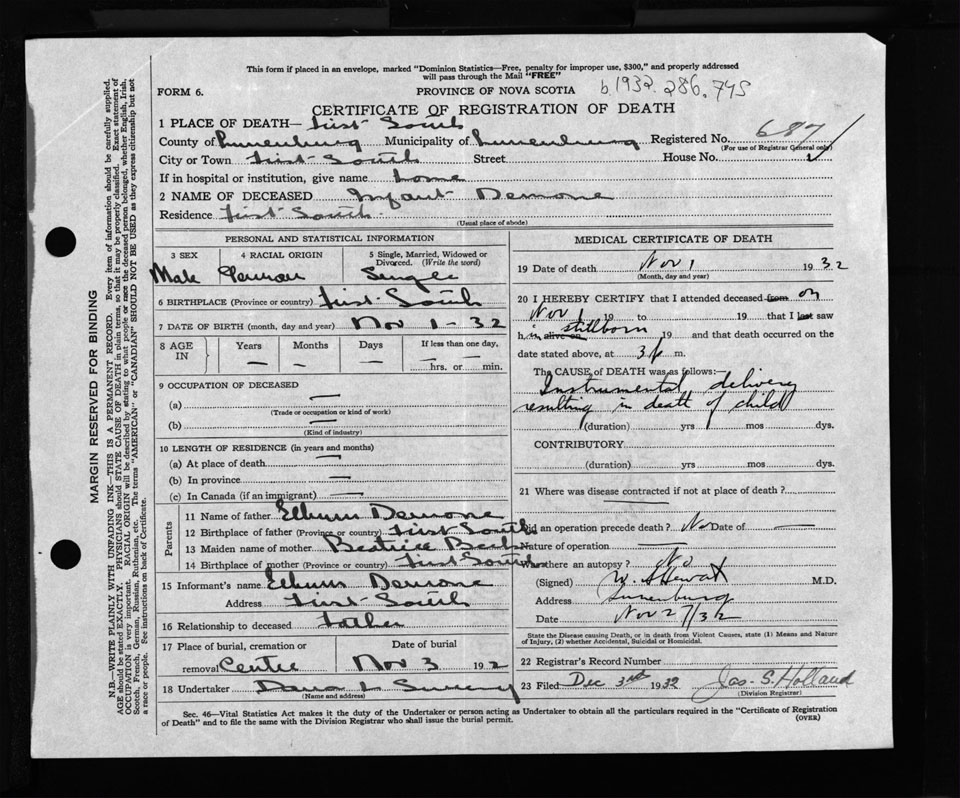 This form if placed in an envelope, marked "Dominion Statistics—Free, penalty for improper use, $300," and properly addressed
will pass through the Mail "FREE"
FORM 6.
PROVINCE OF NOVA SCOTIA
b. 1932. 286. 745
CERTIFICATE OF REGISTRATION OF DEATH
1 PLACE OF DEATH— First South
County of Lunenburg Municipality of Lunenburg Registered No. 687
(For use of Registrar General only)
City or Town First South Street House No.
If in hospital or institution, give name home
2 NAME OF DECEASED Infant Demone
Residence First South
(Usual place of abode)
PERSONAL AND STATISTICAL INFORMATION
3 SEX 4 RACIAL ORIGIN 5 Single, Married, Widowed or Divorced. (Write the word)
Male German Single
6 BIRTHPLACE (Province or country) First South
7 DATE OF BIRTH (month, day and year) Nov 1 - 32
8 AGE IN Years Months Days If less than one day,
— — — — hrs. or — min.
9 OCCUPATION OF DECEASED
(a) —
(Trade or occupation or kind of work)
(b) —
(Kind of industry)
10 LENGTH OF RESIDENCE (in years and months)
(a) At place of death —
(b) In province —
(c) In Canada (if an immigrant) —
Parents
11 Name of father
Demone
12 Birthplace of father (Province or country) First South
13 Maiden name of mother Beatrice
14 Birthplace of mother (Province or country) First South
15 Informant's name
Demone
Address First South
16 Relationship to deceased Father
17 Place of burial, cremation or removal Centre Date of burial Nov 3 192
18 Undertaker
(Name and address)
MEDICAL CERTIFICATE OF DEATH
19 Date of death Nov 1 1932
(Month, day and year)
20 I HEREBY CERTIFY that I attended deceased from on
Nov 1 19 to 19 that I last saw
h is alive on stillborn 19 and that death occurred on the
date stated above, at 3 p m.
The CAUSE of DEATH was as follows:—
Instrumental delivery
resulting in death of child
(duration) yrs mos dys.
CONTRIBUTORY
(duration) yrs mos dys.
21 Where was disease contracted if not at place of death?
Did an operation precede death? No Date of —
Nature of operation —
Was there an autopsy? No
(Signed) W. A. Hewat M.D.
Address Lunenburg
Date Nov 27/32
State the Disease causing Death, or in death from Violent Causes, state (1) Means and Nature
of Injury, (2) whether Accidental, Suicidal or Homicidal.
22 Registrar's Record Number
23 Filed Dec 3rd 1932 Jas. S. Holland
(Division Registrar)
Sec. 46—Vital Statistics Act makes it the duty of the Undertaker or person acting as Undertaker to obtain all the particulars required in the "Certificate of Registration
of Death" and to file the same with the Division Registrar who shall issue the burial permit.
(OVER)
MARGIN RESERVED FOR BINDING
N.B.—WRITE PLAINLY WITH UNFADING INK—THIS IS A PERMANENT RECORD. Every item of information should be carefully supplied.
AGE should be stated EXACTLY. PHYSICIANS should STATE CAUSE OF DEATH in plain terms, so that it may be properly classified. Exact statement of
OCCUPATION is very important. RACIAL ORIGIN will be described by stating to what people or race the deceased person belonged, whether English, Irish,
Scotch, French, German, Russian, Ruthenian, etc. The terms "AMERICAN" or "CANADIAN" SHOULD NOT BE USED as they express citizenship but not
a race or people. See instructions on back of Certificate.